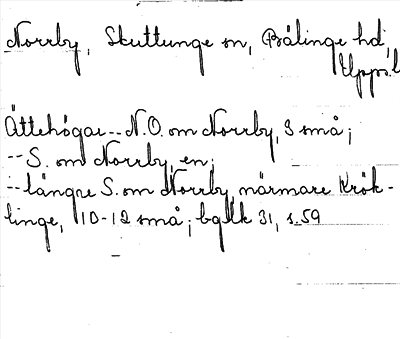 Norrby, Skuttunge sn, Bälinge hd,
Upps. l
Ättehögar -- N.O. om Norrby, 3 små;
-- S. om Norrby, en;
-- längre S. om Norrby, närmare Krök-
linge, 10-12 små; bqlk 31, s. 59